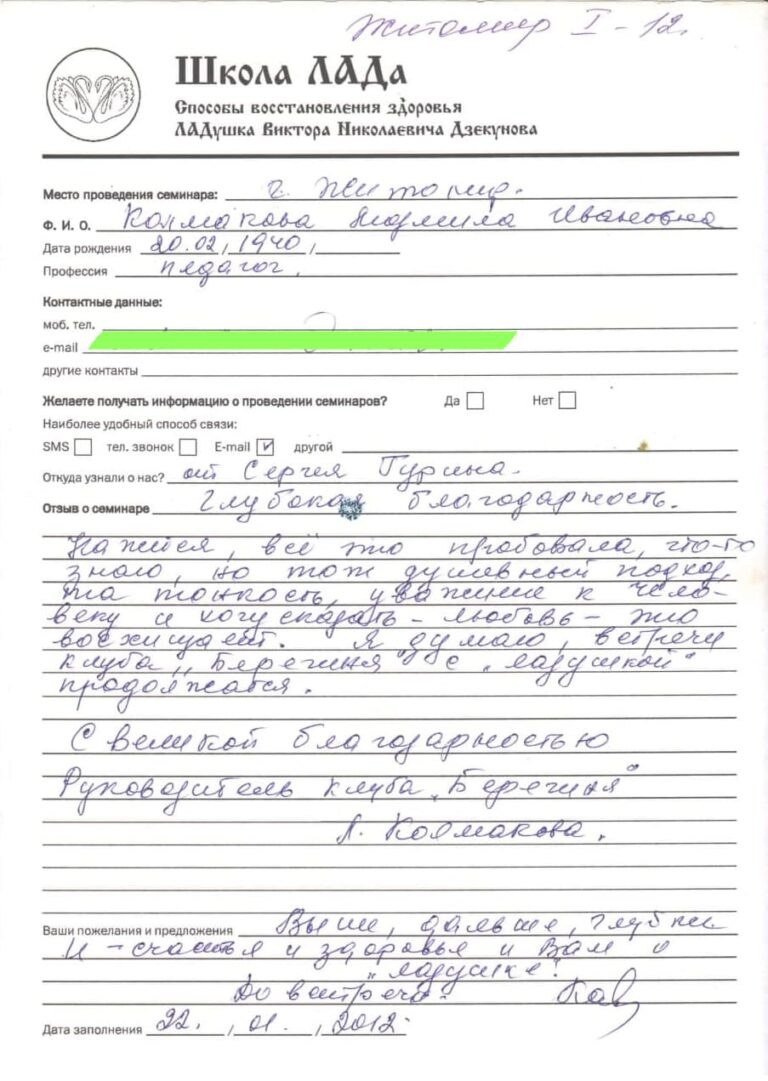 Житомир I - 12.
Школа ЛАДа
Способы восстановления здоровья
ЛАДушка Виктора Николаевича Дзекунова
Место проведения семинара: г. Житомир.
Ф. И. О. Колмакова Людмила Ивановна
Дата рождения 20.02, 1940,
Профессия педагог.
Контактные данные:
моб. тел.
e-mail
другие контакты
Желаете получать информацию о проведении семинаров? Да Нет
Наиболее удобный способ связи:
SMS тел. звонок E-mail другой
Откуда узнали о нас? от Сергея Гурина.
Отзыв о семинаре Глубокая благодарность.
Кажется, всё это пробовала, что-то
знаю, но тож душевный подход,
та тонкость, уважение к чело-
веку и хочу сказать - любовь - это
восхищает. Я думаю, встречи
клуба „Берегиня" с „Ладушкой"
продолжатся.
С великой благодарностью
Руководитель клуба „Берегиня"
Л. Колмакова.
Ваши пожелания и предложения Выше, дальше, глубже
И - счастья и здоровья и Вам и
„Ладушке".
До встречи.
Дата заполнения 22. , 01. , 2012.